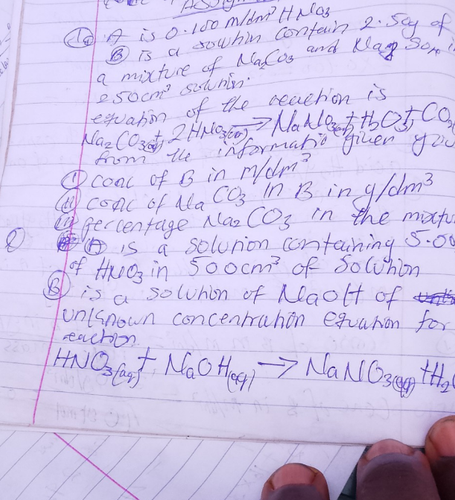 A is 0.100 m/dm³ HNO3
B is a solution contain 2.50g of
a mixture of Na2CO3 and Na2SO4 in
250cm³ solution.
equation of the reaction is
Na2CO3(aq) + 2HNO3(aq) → NaNO3 + H2O + CO2
from the information given you
(i) conc of B in m/dm³
(ii) conc of Na CO3 in B in g/dm³
percentage Na2CO3 in the mixtu
2 A is a solution containing 5.00
of HNO3 in 500cm³ of solution
B is a solution of NaOH of
unknown concentration equation for
reaction
HNO3(aq) + NaOH(aq) → NaNO3(aq) + H2